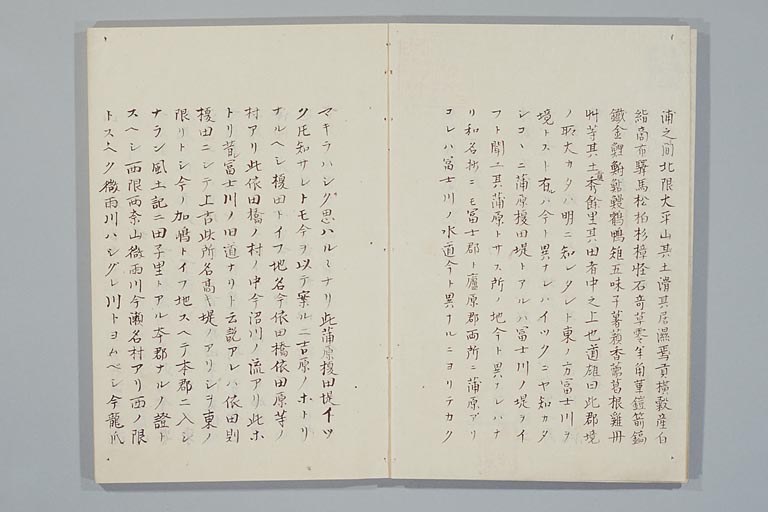 浦之間北限大平山其土滑其居濕焉貢横穀産白
絹商布驛馬松柏杉樟怪石奇草零羊角菫鎧箭鎬
鐵金鯉鮒鮎鰻鶴鴨雉五味子薯蕷香薷葛根雞冊
艸等其土秀餘里其田者中之上也道雄曰此郡境
ノ取大カタハ明ニ知レタレト東ノ方冨士川ヲ
境トスト有ハ今ト異ナレハイツクニヤ知カタ
シコヽニ蒲原榎田堤トアルハ冨士川ノ堤ヲイ
フト聞エ其蒲原トサス所ノ地今ト異アレハナ
リ和名抄ニモ冨士郡ト廬原郡両所ニ蒲原アリ
コレハ冨士川ノ水道今ト異ナルニヨリテカク
マキラハシク思ハルヽナリ此蒲原榎田堤イツ
ク氏知サレトモ今ヲ以テ案ルニ吉原ノホトリ
ナルヘシ榎田トイフ地名今依田橋依田原等ノ
村アリ此依田橋ノ村ノ中今沼川ノ流アリ此ホ
トリ昔冨士川ノ旧道ナリト云説アレハ依田則
榎田ニシテ上古此所名高キ堤ノアリシヲ東ノ
限リトシ今ノ加嶋トイフ地スヘテ本郡ニ入シ
ナラン風土記ニ田子里トアル本郡ナルノ證ト
スヘシ西限西奈山微雨川今瀬名村アリ西ノ限
トスヘク微雨川ハシグレ川トヨムベシ今龍爪